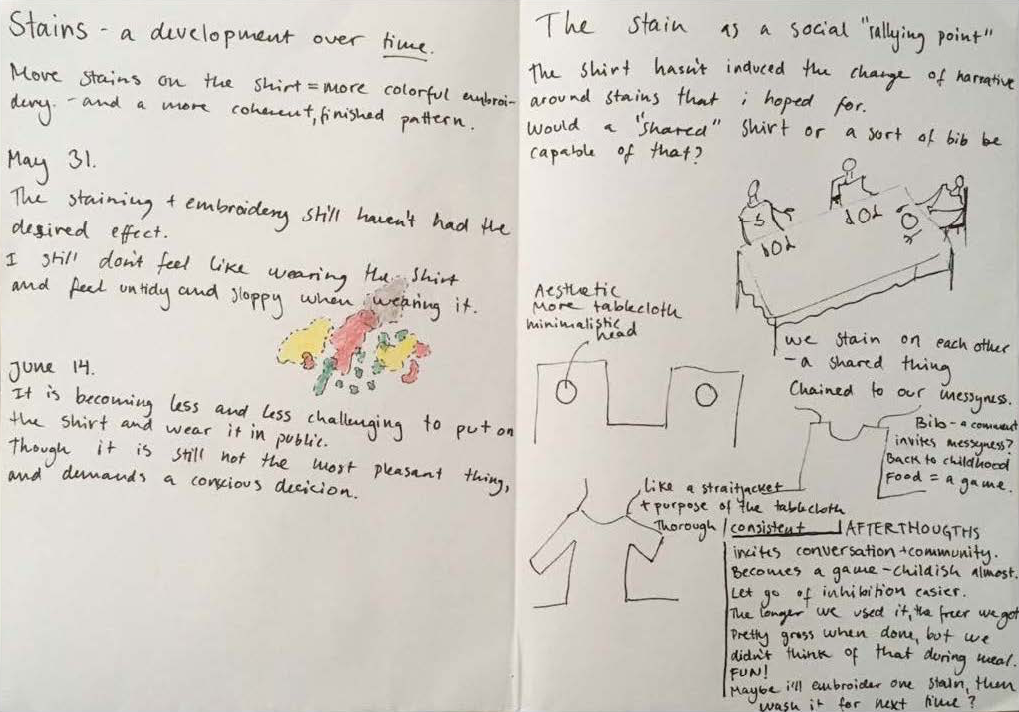 Stains - a development over time.
More stains on the shirt = more colorful embroi-
dery. - and a more coherent, finished pattern.
May 31.
The staining + embroidery still haven't had the
desired effect.
I still don't feel like wearing the shirt
and feel untidy and sloppy when wearing it.
June 14.
It is becoming less and less challenging to put on
the shirt and wear it in public.
Though it is still not the most pleasant thing,
and demands a conscious decicion.
The stain as a social "rallying point"
The shirt hasn't induced the change of narrative
around stains that i hoped for.
Would a "shared" shirt or a sort of bib be
capable of that?
we stain on each other
- a shared thing
Chained to our messyness.
Aesthetic
More tablecloth
minimalistic
head
Bib - a comment
invites messyness?
Back to childhood
Food = a game.
Like a straitjacket
+ purpose of the tablecloth
Thorough / consistent
AFTERTHOUGTHS
incites conversation + community.
Becomes a game - childish almost.
Let go of inhibition easier.
The longer we used it, the freer we got
Pretty gross when done, but we
didn't think of that during meal.
FUN!
Maybe i'll embroider one stain, then
wash it for next time?